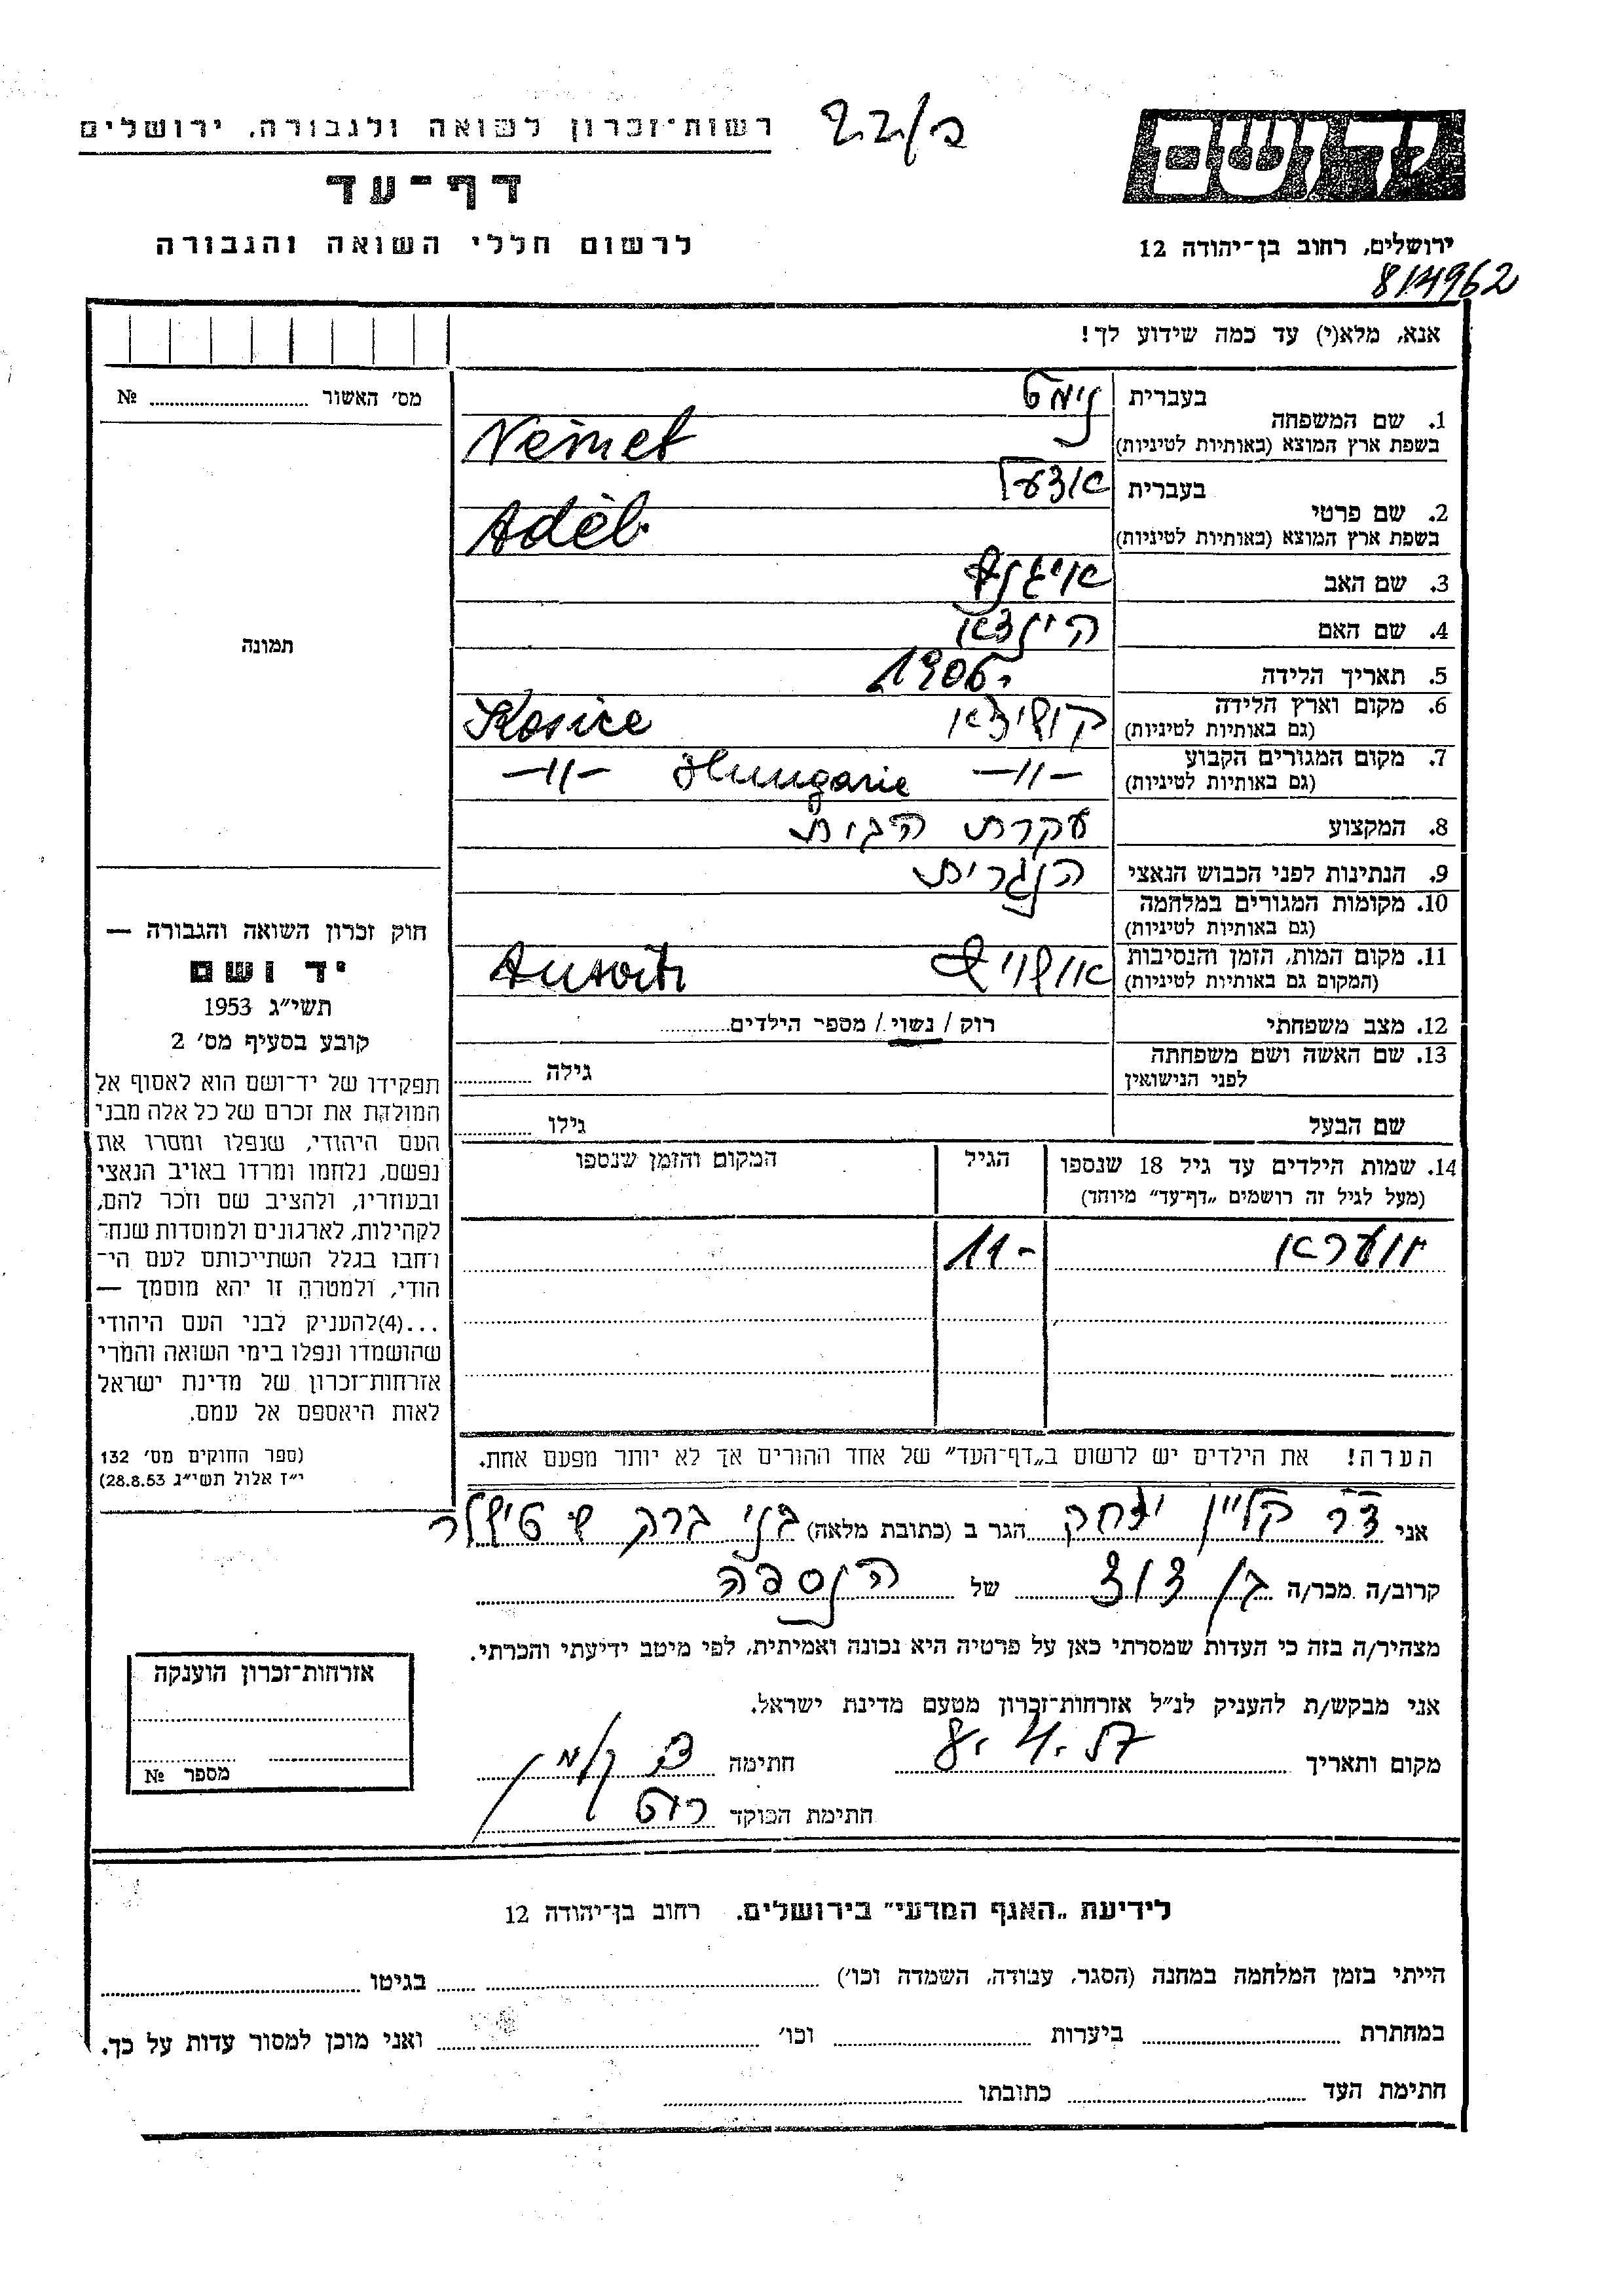 רשות־זכרון לשואה ולגבורה, ירושלים
דף־עד
לרשום חללי השואה והגבורה
יד ושם
ירושלים, רחוב בן־יהודה 12
814962
אנא, מלא(י) עד כמה שידוע לך!
מס' האשור № 
תמונה
1. שם המשפחה בעברית נימט
בשפת ארץ המוצא (באותיות לטיניות) Német
2. שם פרטי בעברית
בשפת ארץ המוצא (באותיות לטיניות) Adèl
3. שם האב
4. שם האם
5. תאריך הלידה 1906
6. מקום וארץ הלידה
(גם באותיות לטיניות) Kosice
7. מקום המגורים הקבוע —11— Hungarie —11—
(גם באותיות לטיניות)
8. המקצוע עקרת הבית
9. הנתינות לפני הכבוש הנאצי הנגרית
10. מקומות המגורים במלחמה
(גם באותיות לטיניות)
11. מקום המות, הזמן והנסיבות
(המקום גם באותיות לטיניות)
12. מצב משפחתי רוק / נשוי / מספר הילדים
13. שם האשה ושם משפחתה
לפני הנישואין גילה
שם הבעל גילו
14. שמות הילדים עד גיל 18 שנספו הגיל המקום והזמן שנספו
(מעל לגיל זה רושמים „דף־עד" מיוחד)
ווערא 11-
הערה! את הילדים יש לרשום ב„דף־העד" של אחד ההורים אך לא יותר מפעם אחת.
חוק זכרון השואה והגבורה —
יד ושם
תשי"ג 1953
קובע בסעיף מס' 2
תפקידו של יד־ושם הוא לאסוף אל
המולדת את זכרם של כל אלה מבני
העם היהודי, שנפלו ומסרו את
נפשם, נלחמו ומרדו באויב הנאצי
ובעוזריו, ולהציב שם וזכר להם,
לקהילות, לארגונים ולמוסדות שנח־
רחבו בגלל השתייכותם לעם הי־
הודי, ולמטרה זו יהא מוסמך —
...(4)להעניק לבני העם היהודי
שהושמדו ונפלו בימי השואה והמרי
אזרחות־זכרון של מדינת ישראל
לאות היאספם אל עמם.
(ספר החוקים מס' 132
י"ז אלול תשי"ג 28.8.53)
אני דר קליין יצחק הגר ב (כתובת מלאה) בני ברק
קרוב/ה מכר/ה בן דוד של הנספה
מצהיר/ה בזה כי העדות שמסרתי כאן על פרטיה היא נכונה ואמיתית, לפי מיטב ידיעתי והכרתי.
אני מבקש/ת להעניק לנ"ל אזרחות־זכרון מטעם מדינת ישראל.
מקום ותאריך 8. 4. 57 חתימה
חתימת הפוקד
אזרחות־זכרון הוענקה
מספר №
לידיעת „האגף המדעי" בירושלים. רחוב בן־יהודה 12
הייתי בזמן המלחמה במחנה (הסגר, עבודה, השמדה וכו') בגיטו
במחתרת ביערות וכו' ואני מוכן למסור עדות על כך.
חתימת העד כתובתו